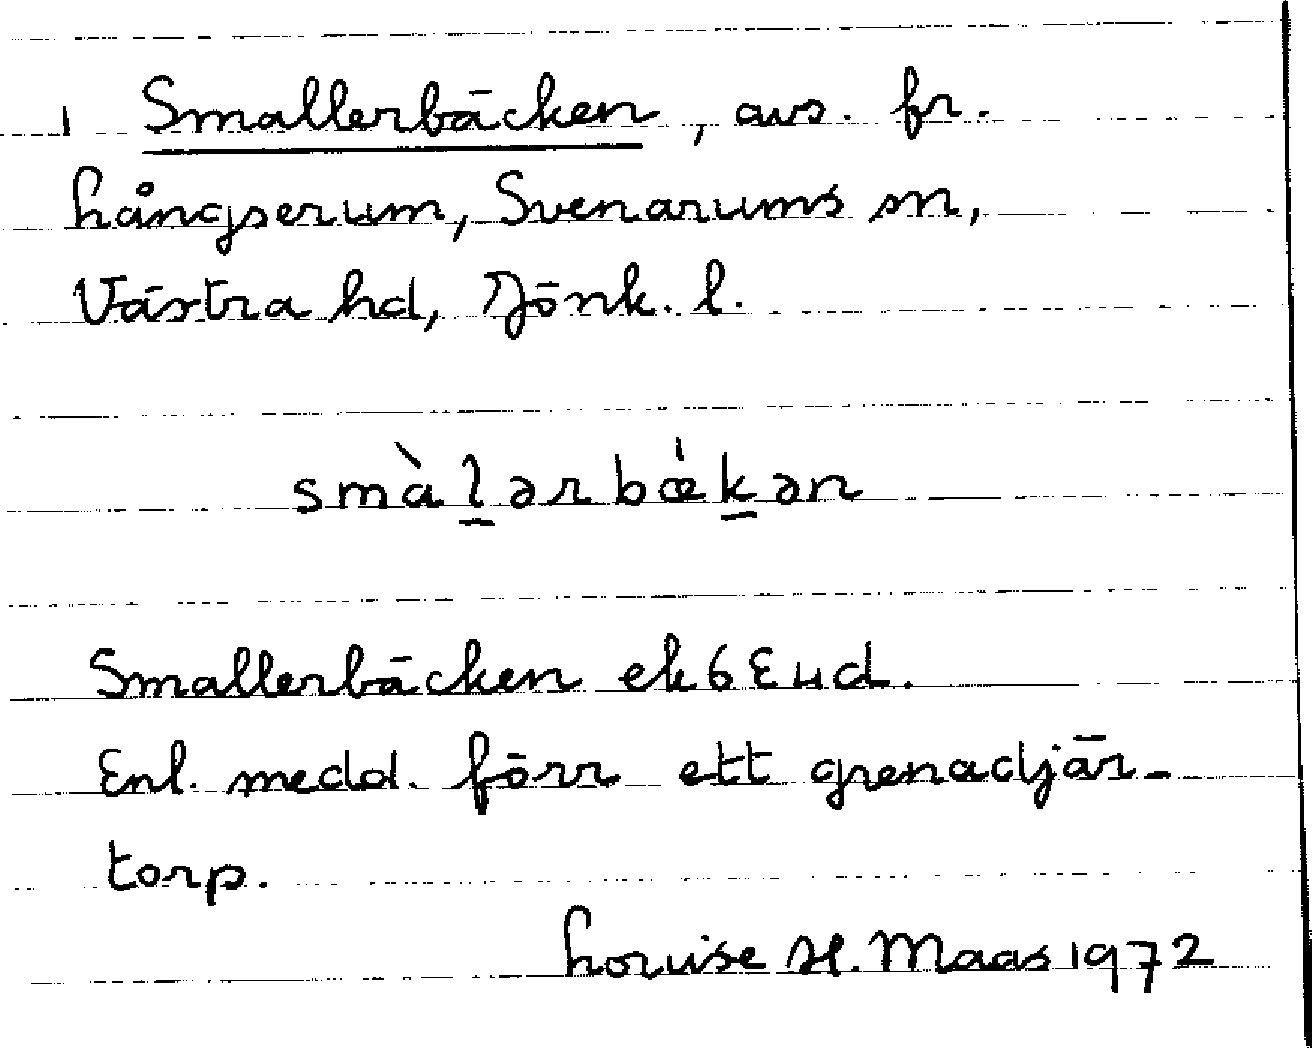 1 Smallerbäcken, avs. fr.
Långserum, Svenarums sn,
Västra hd, Jönk. l.
smàlərbœ́kən
Smallerbäcken ek 6 E u d.
Enl. medd. förr ett grenadjär-
torp.
Louise H. Maas 1972